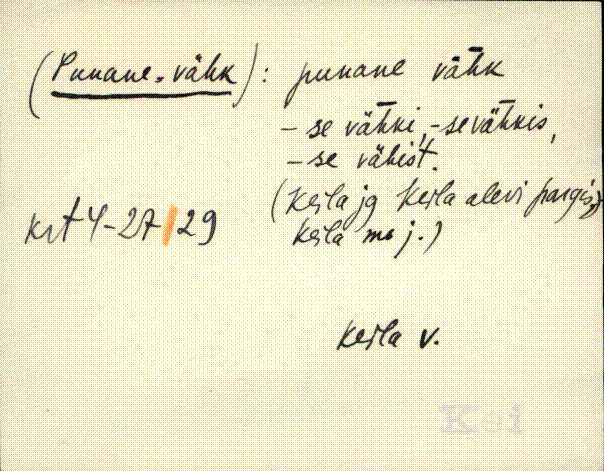 (Punane-vähk): punane vähk
-se vähki, -se vähkis,
-se vähist.
(Keila jg Keila alevi pargis,
Keila mõj.)
krt 4-27/29
Keila v.
Kei